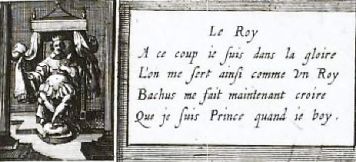 Le Roy
A ce coup ie suis dans la gloire
L'on me sert ainsi comme Vn Roy
Bachus me fait maintenant croire
Que je suis Prince quand ie boy.